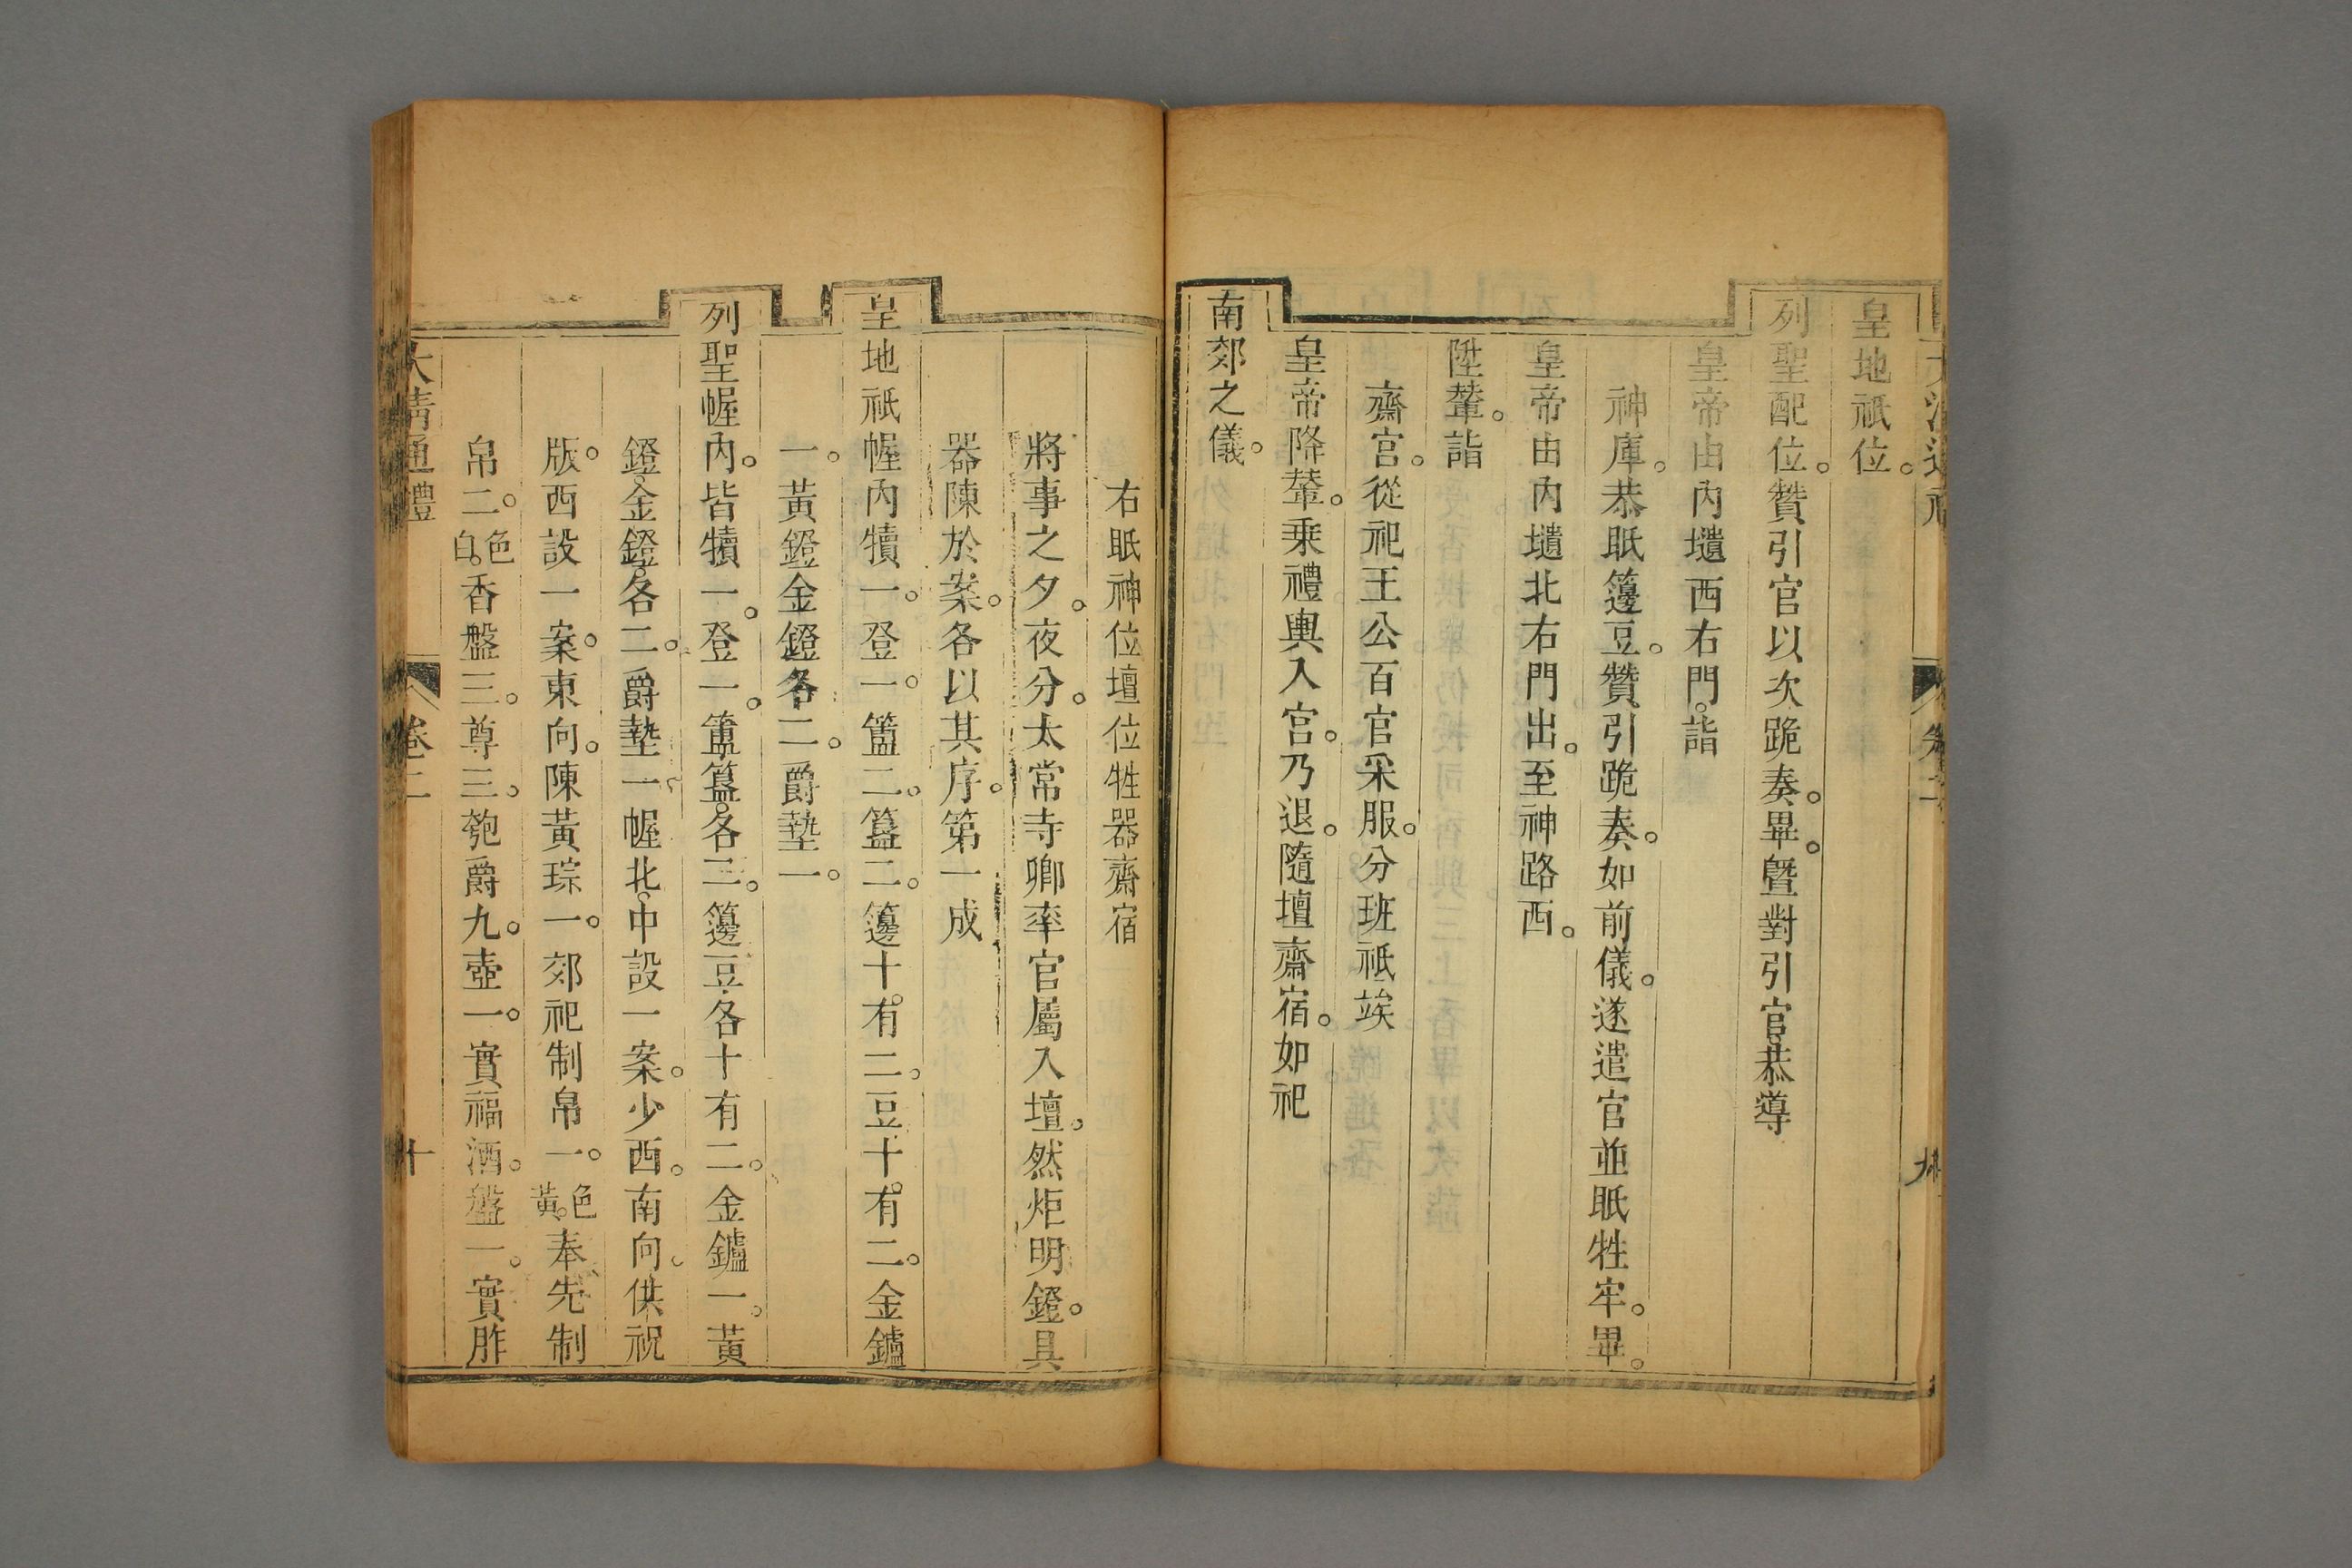 皇地祇位。
列聖配位。贊引官以次跪奏。畢。曁對引官。恭導
皇帝由內壝西右門。詣
神庫。恭眡籩豆。贊引跪奏。如前儀。遂遣官並眡牲牢。畢。
皇帝由內壝北右門出。至神路西。
陞輦。詣
齋宮。從祀王公百官采服。分班祗竢
皇帝降輦。乗禮輿入宮。乃退。隨壇齋宿。如祀
南郊之儀。
右眡神位壇位牲器齋宿
將事之夕。夜分。太常寺卿率官屬入壇。然炬明鐙。具
器陳於案。各以其序。第一成
皇地祇幄內犢一。登一。簠二。簋二。籩十。有二。豆十。有二。金鑪
一。黃鐙金鐙各二。爵墊一。
列聖幄內。皆犢一。登一。簠簋。各二。籩豆各十有二。金鑪一。黃
鐙。金鐙。各二。爵墊一。幄北。中設一案。少西。南向。供祝
版。西設一案。東向。陳黃琮一。郊祀制帛一。色黃。奉先制
帛二。色白。香盤三。尊三。匏爵九。壺一。實福酒。盤一。實胙
大清通禮 卷二 十